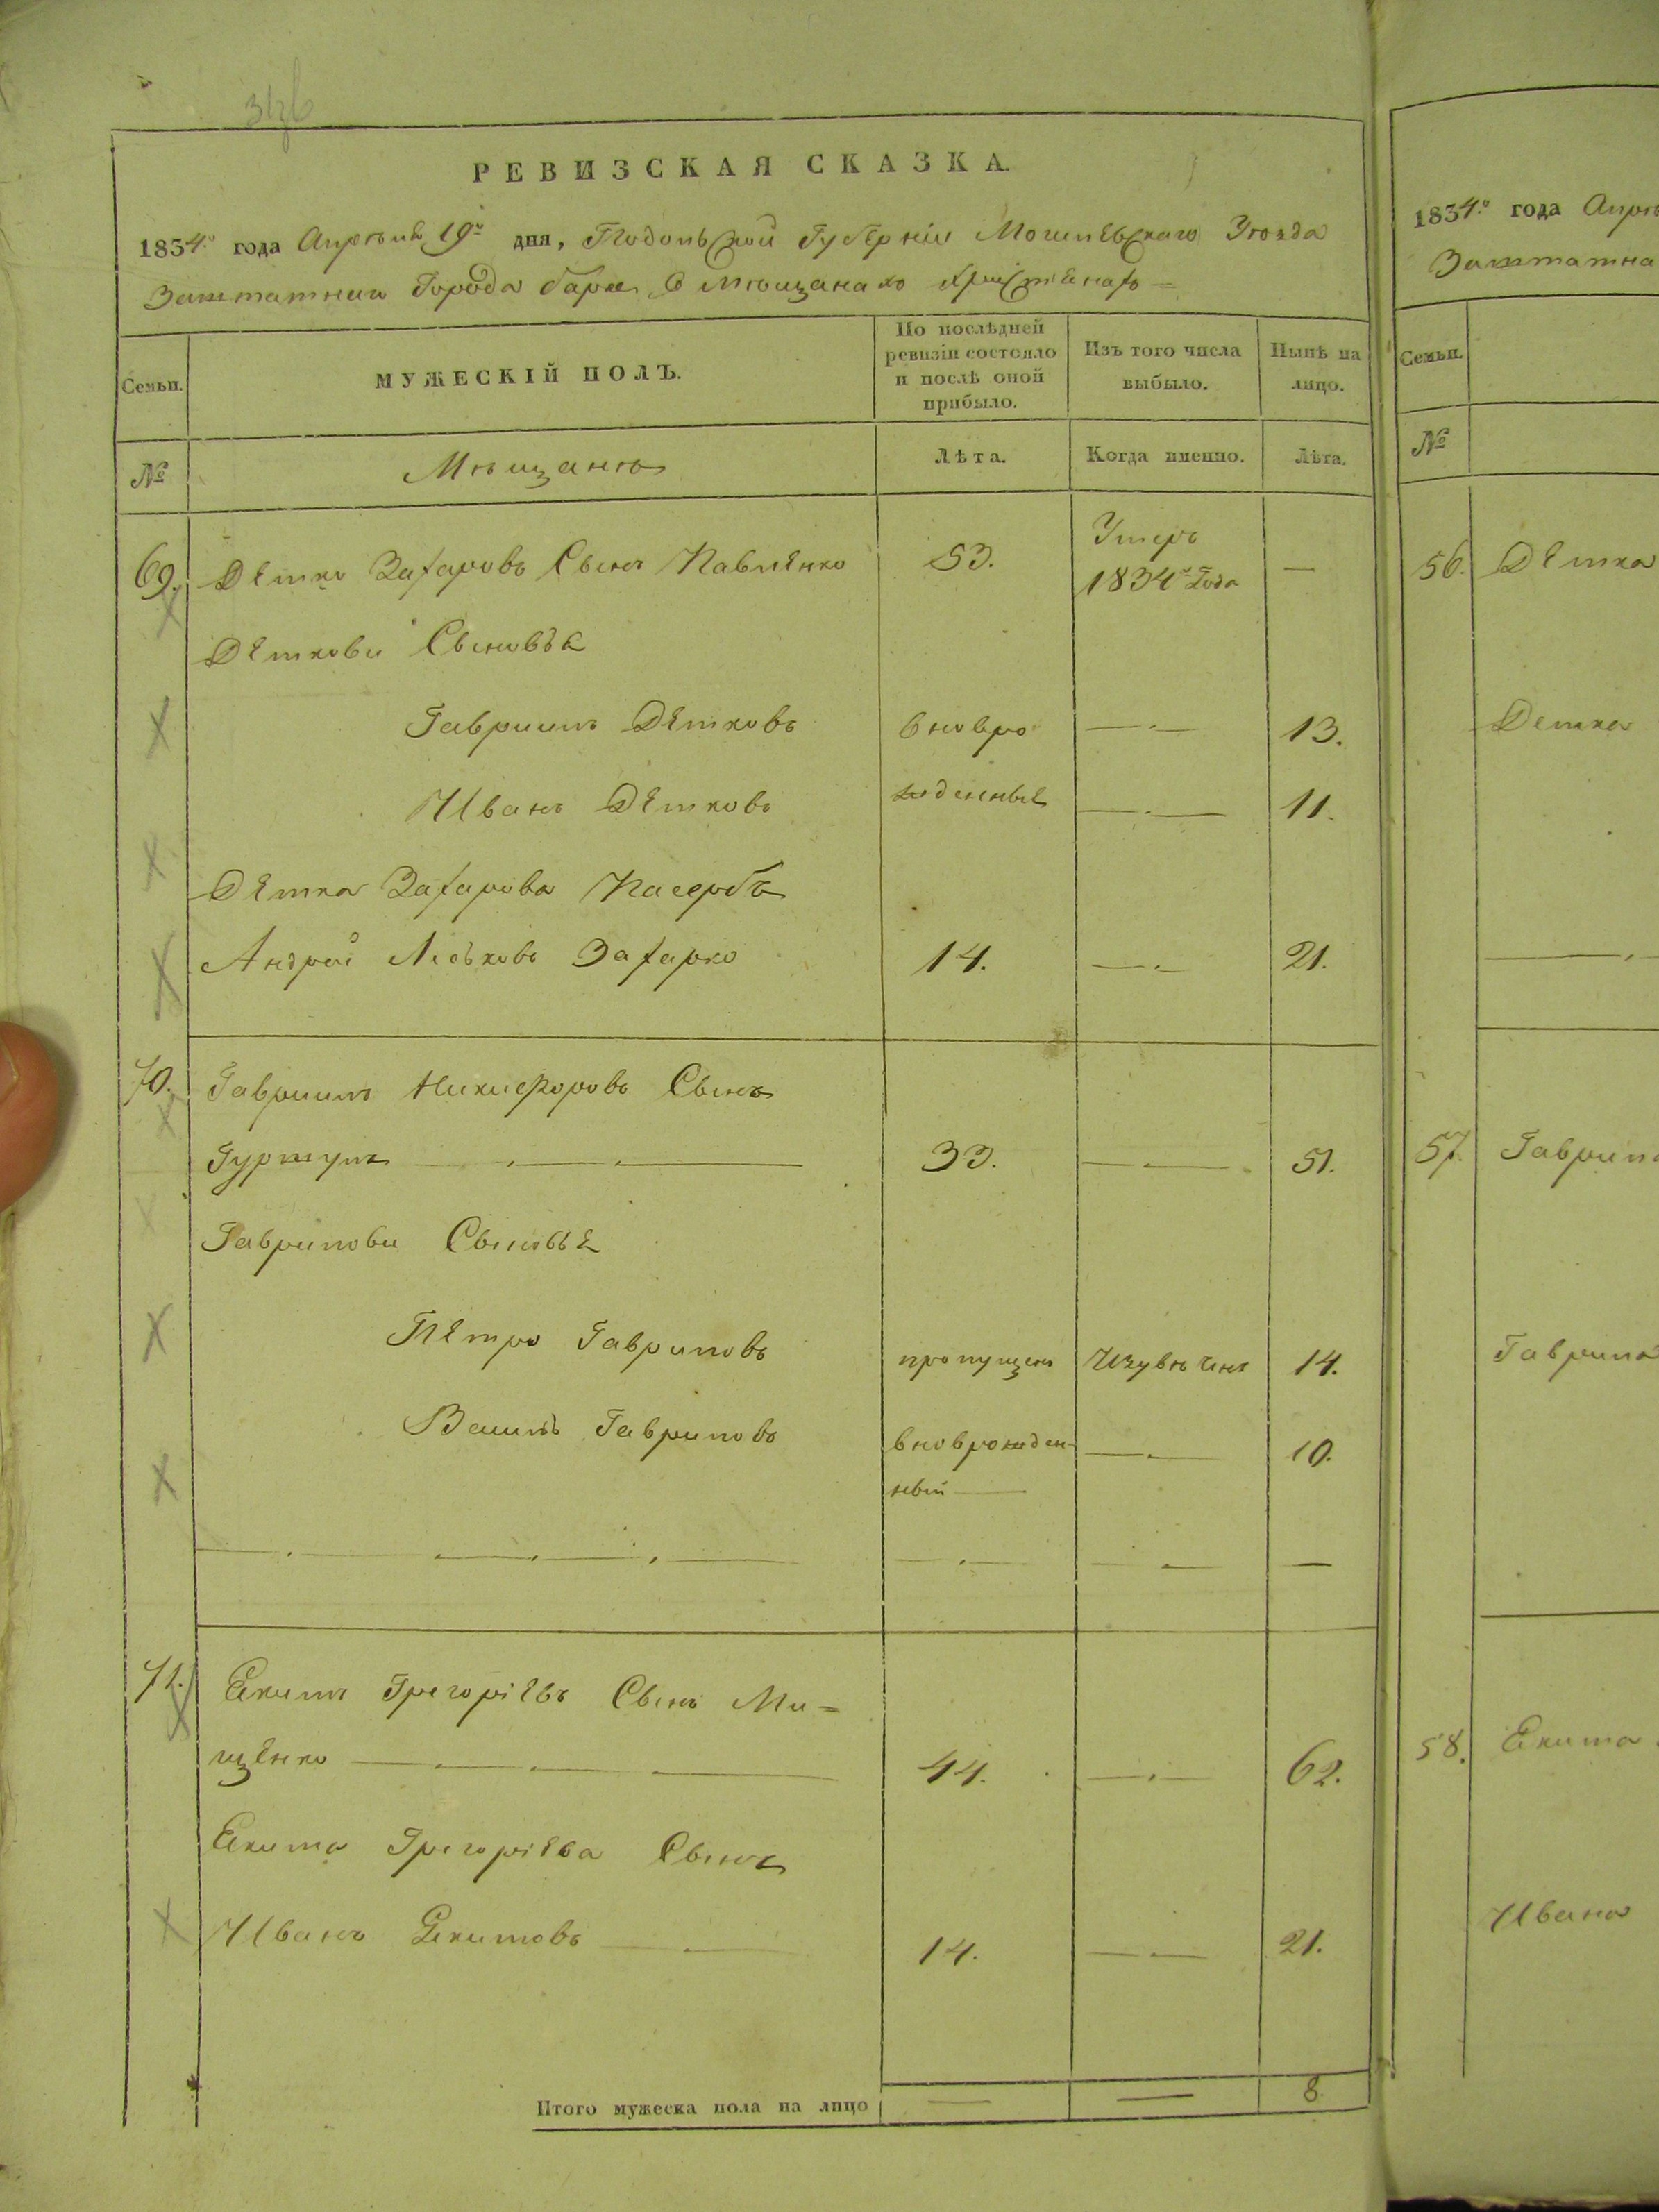 РЕВИЗСКАЯ СКАЗКА.
1834.º года Апреля 19º дня, Подольской Губерніи Могилевскаго Уезда
Заштатнаго Города бара О мещанахъ Християнахъ =
Семьи. МУЖЕСКІЙ ПОЛЪ. По послѣдней ревизіи состояло и послѣ оной прибыло. Изъ того числа выбыло. Нынѣ на лицо.
№ Мещане Лѣта. Когда именно. Лѣта.
69. Детко Захаровъ Сынъ Павленко 53. Умеръ 1834º Года —
Деткови Сыновье
Гавриилъ Детковъ вновро — 13.
Иванъ Детковъ жденные — 11.
Детка Захарова Пасербъ
Андрей Леськовъ Захарко 14. — 21.
70. Гавриилъ Никифоровъ Сынъ
Гуртулъ — 33. — 51.
Гаврилови Сыновье
Петро Гавриловъ пропущенъ 14.
Василь Гавриловъ вноврожден- — 10.
ный —
— — — —
71. Екимъ Грегоріевъ Сынъ Ми=
щенко — 44. — 62.
Екима Грегоріева Сынъ
Иванъ Екимовъ — 14. — 21.
Итого мужеска пола на лицо — — 8
1834.º года
Заштатна
Семьи.
№
56. Детка
Детка
57. Гаврил
Гаврила
58. Екима
Ивана